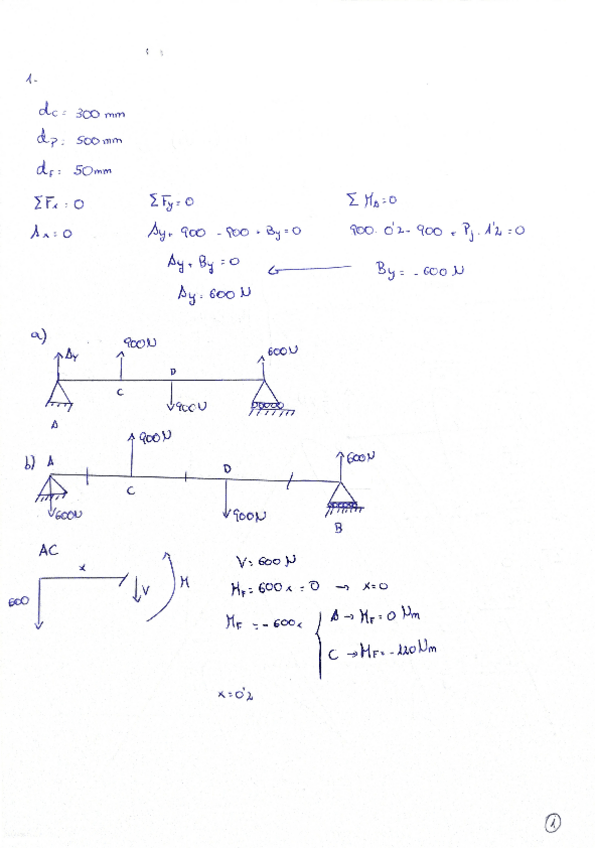 1-
dc = 300 mm
dp = 500 mm
dF = 50mm
ΣFx = 0 ΣFy = 0 ΣMA = 0
Ax = 0 Ay + 900 - 900 + By = 0 900 · 0'2 - 900 + Pj · 1'2 = 0
Ay + By = 0 By = - 600 N
Ay = 600 N
a)
Ay 900N 600N
D
C 900N
A
b) A 900N D 600N
C
600N 900N
B
AC
x V = 600 N
600 V M MF = 600x = 0 → x = 0
MF = - 600x A → MF = 0 Nm
C → MF = - 120 Nm
x = 0'2
1